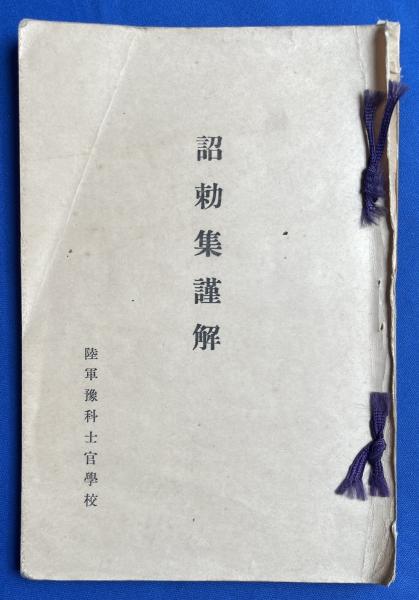 詔勅集謹解
陸軍豫科士官學校